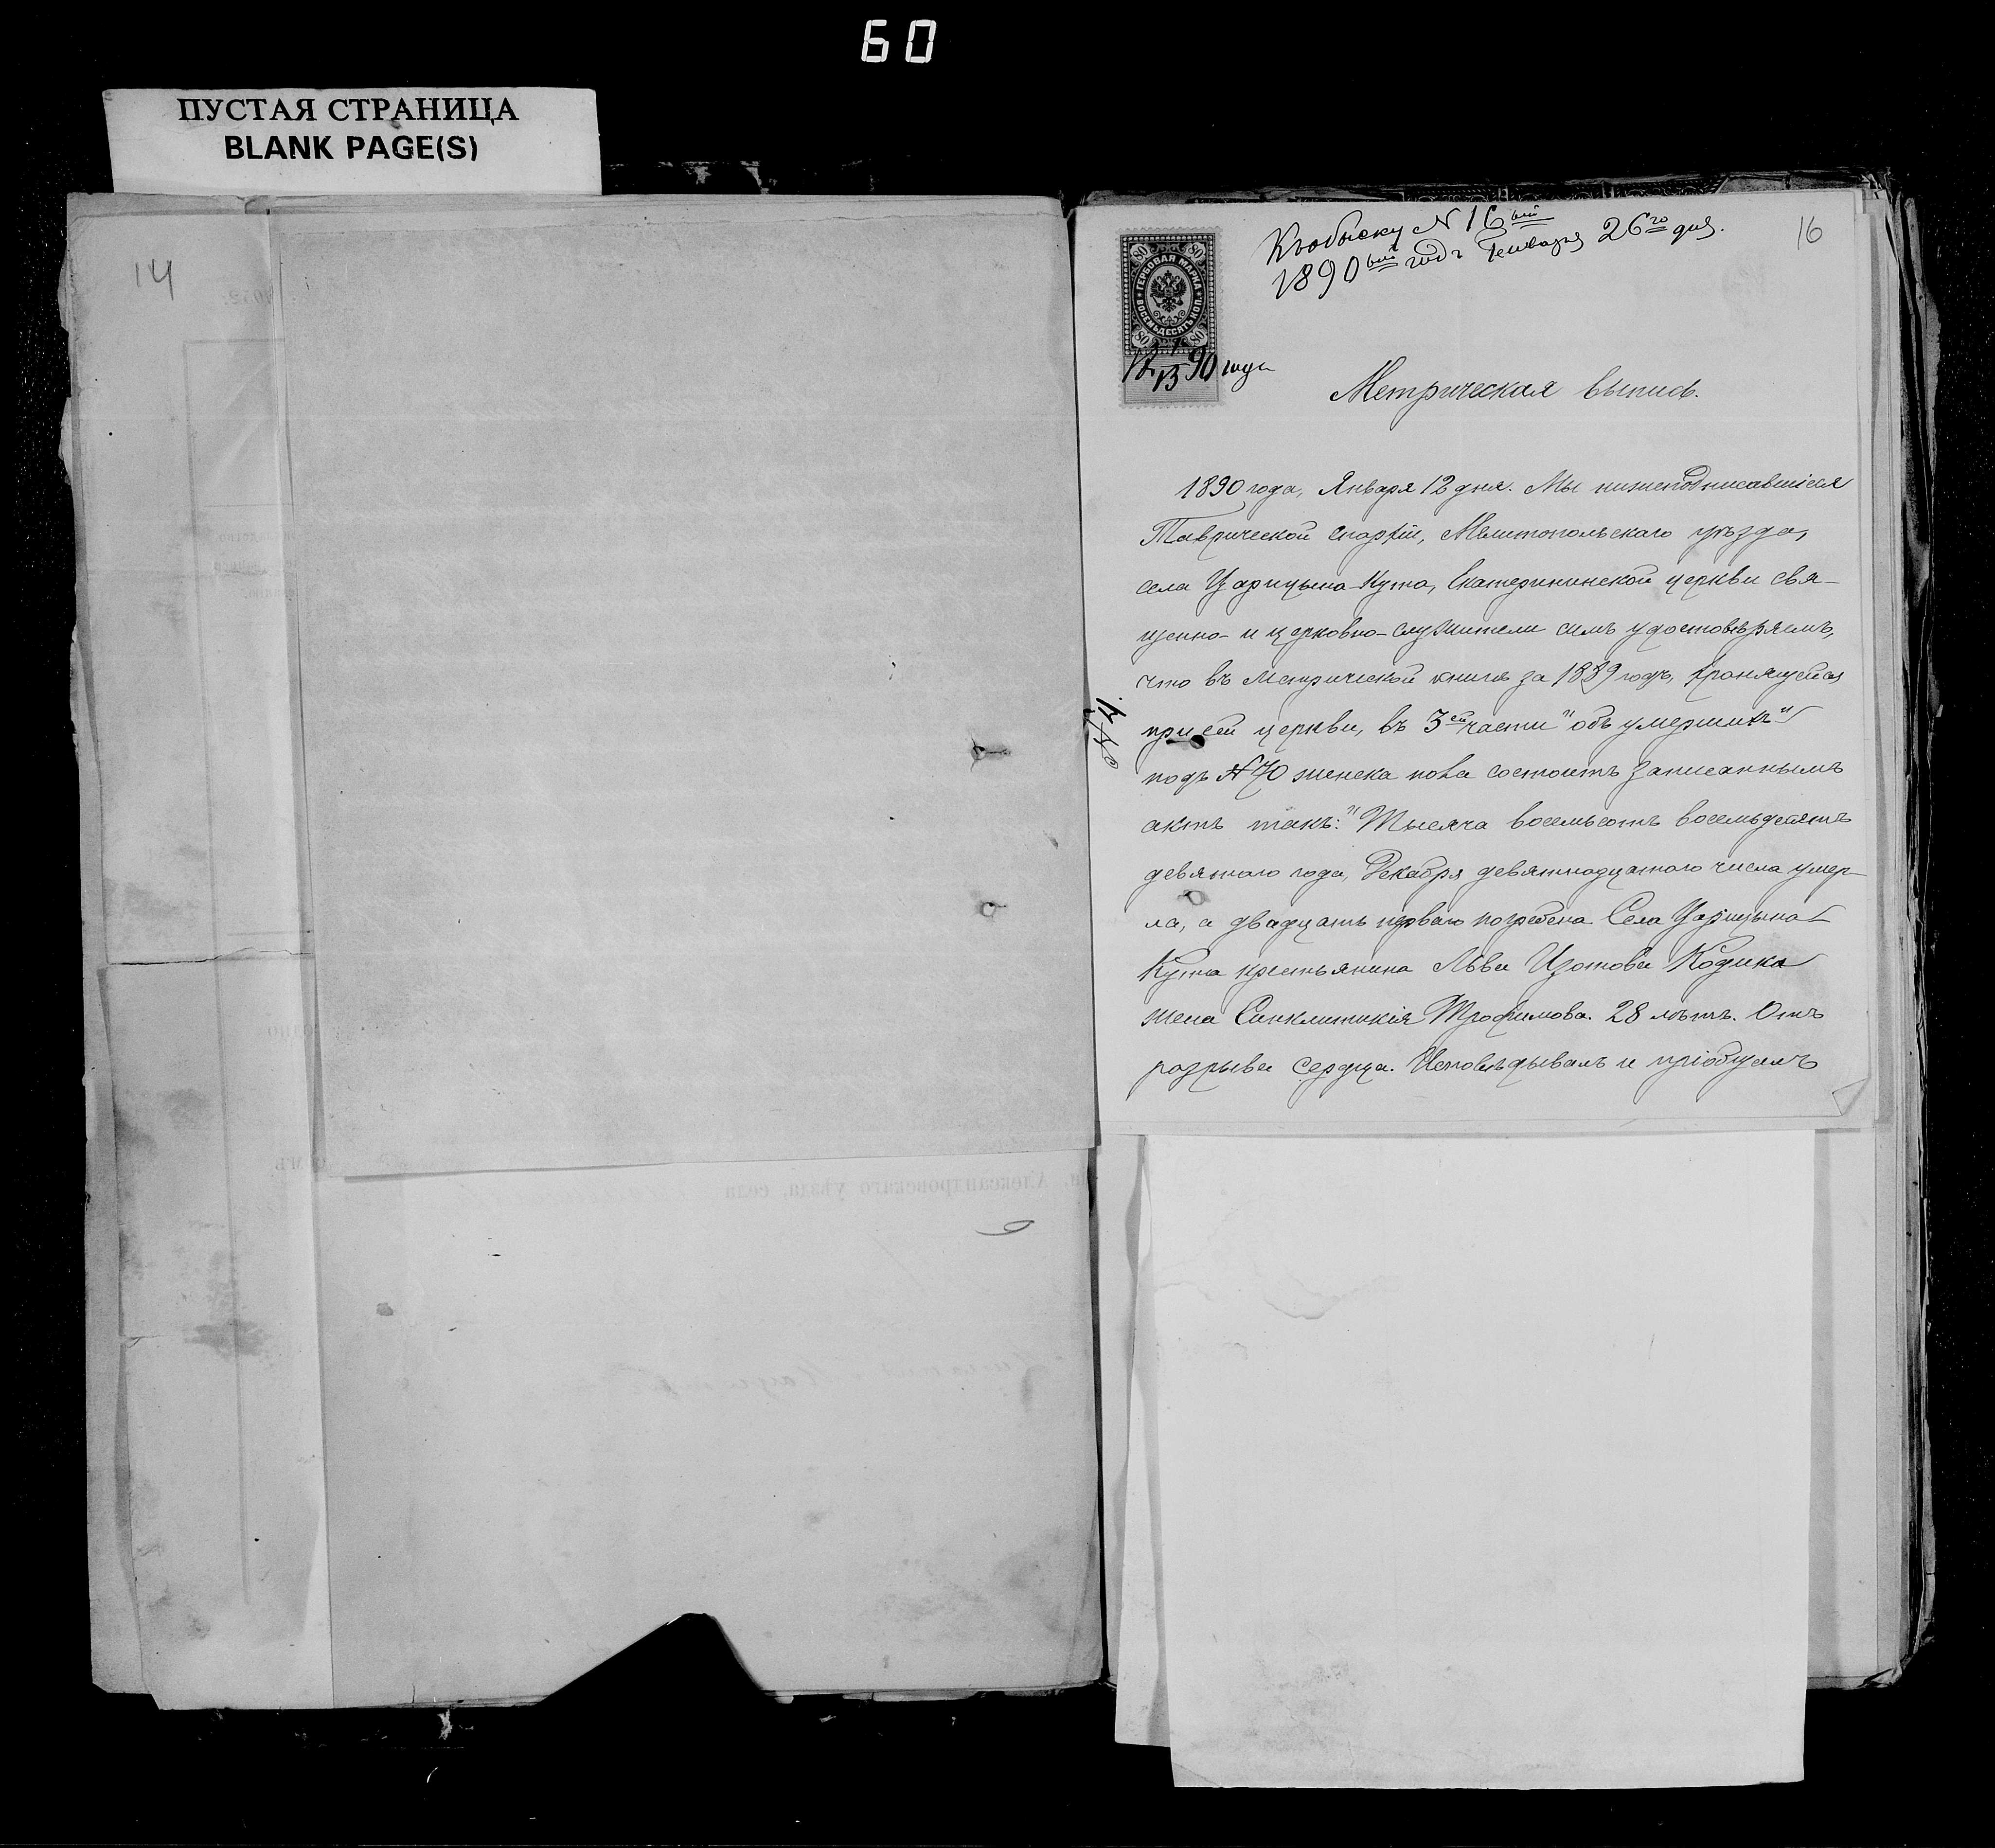 60
ПУСТАЯ СТРАНИЦА
BLANK PAGE(S)
14
16
Къ обыску N 16ый
1890ый годъ Генваря 26го дня.
80 80
ГЕРБОВАЯ МАРКА
ВОСЕМЬДЕСЯТЪ КОП.
80 80
90 года
Метрическая выпись.
1890 года, Января 12 дня. Мы нижеподписавшіеся
Таврической епархіи, Мелитопольскаго уѣзда,
села Царицына-Кута, Екатерининской церкви свя-
щенно- и церковно-служители симъ удостовѣряемъ,
что въ Метрической книгѣ за 1889 годъ, хранящейся
при сей церкви, въ 3ей части "объ умершихъ"
подъ № 70 женска пола состоитъ записаннымъ
актъ такъ: "Тысяча восемьсотъ восемьдесятъ
девятаго года, Декабря девятнадцатаго числа умер-
ла, а двадцать перваго погребена Села Царицына-
Кута крестьянина Льва Изотова Кодика
жена Синклитикія Трофимова. 28 лѣтъ. Отъ
разрыва сердца. Исповѣдывалъ и пріобщалъ
Александровскаго уѣзда, села